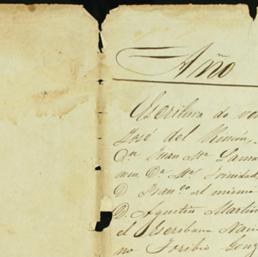 Año
Escritura de ven
José del Rincón,
Dn Juan Ma. Lama
Da. Ma. Trinidad
D. Juan co. el mismo
D. Agustin Martin
el Escribano Naci
no Toribio Gonz